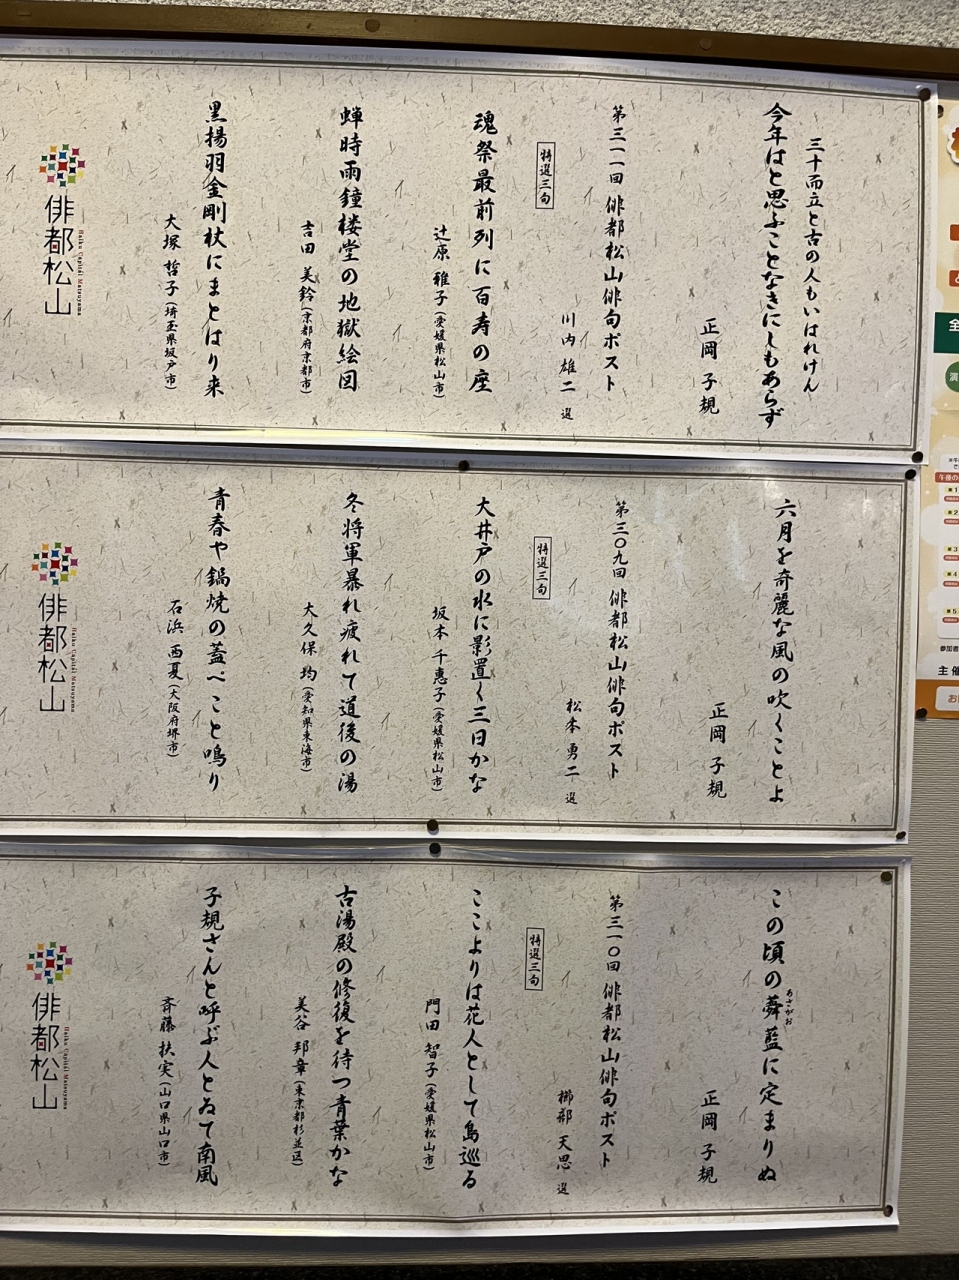 三十而立と古の人もいはれけん
今年はと思ふことなきにしもあらず
正岡 子規
第三一一回 俳都松山俳句ポスト
川内 雄二 選
特選三句
魂祭最前列に百寿の座
辻原 雅子(愛媛県松山市)
蝉時雨鐘楼堂の地獄絵図
吉田 美鈴(京都府京都市)
黒揚羽金剛杖にまとはり来
大塚 哲子(埼玉県坂戸市)
Haiku Capital Matsuyama
俳都松山
六月を奇麗な風の吹くことよ
正岡 子規
第三〇九回 俳都松山俳句ポスト
松本 勇二 選
特選三句
大井戸の水に影置く三日かな
坂本 千恵子(愛媛県松山市)
冬将軍暴れ疲れて道後の湯
大久保 均(愛知県東海市)
青春や鍋焼の蓋ぺこと鳴り
石浜 西夏(大阪府堺市)
Haiku Capital Matsuyama
俳都松山
この頃の蕣藍に定まりぬ
あさがお
正岡 子規
第三一〇回 俳都松山俳句ポスト
櫛部 天思 選
特選三句
ここよりは花人として島巡る
門田 智子(愛媛県松山市)
古湯殿の修復を待つ青葉かな
美谷 邦章(東京都杉並区)
子規さんと呼ぶ人とゐて南風
斉藤 扶実(山口県山口市)
Haiku Capital Matsuyama
俳都松山
全
演
主催